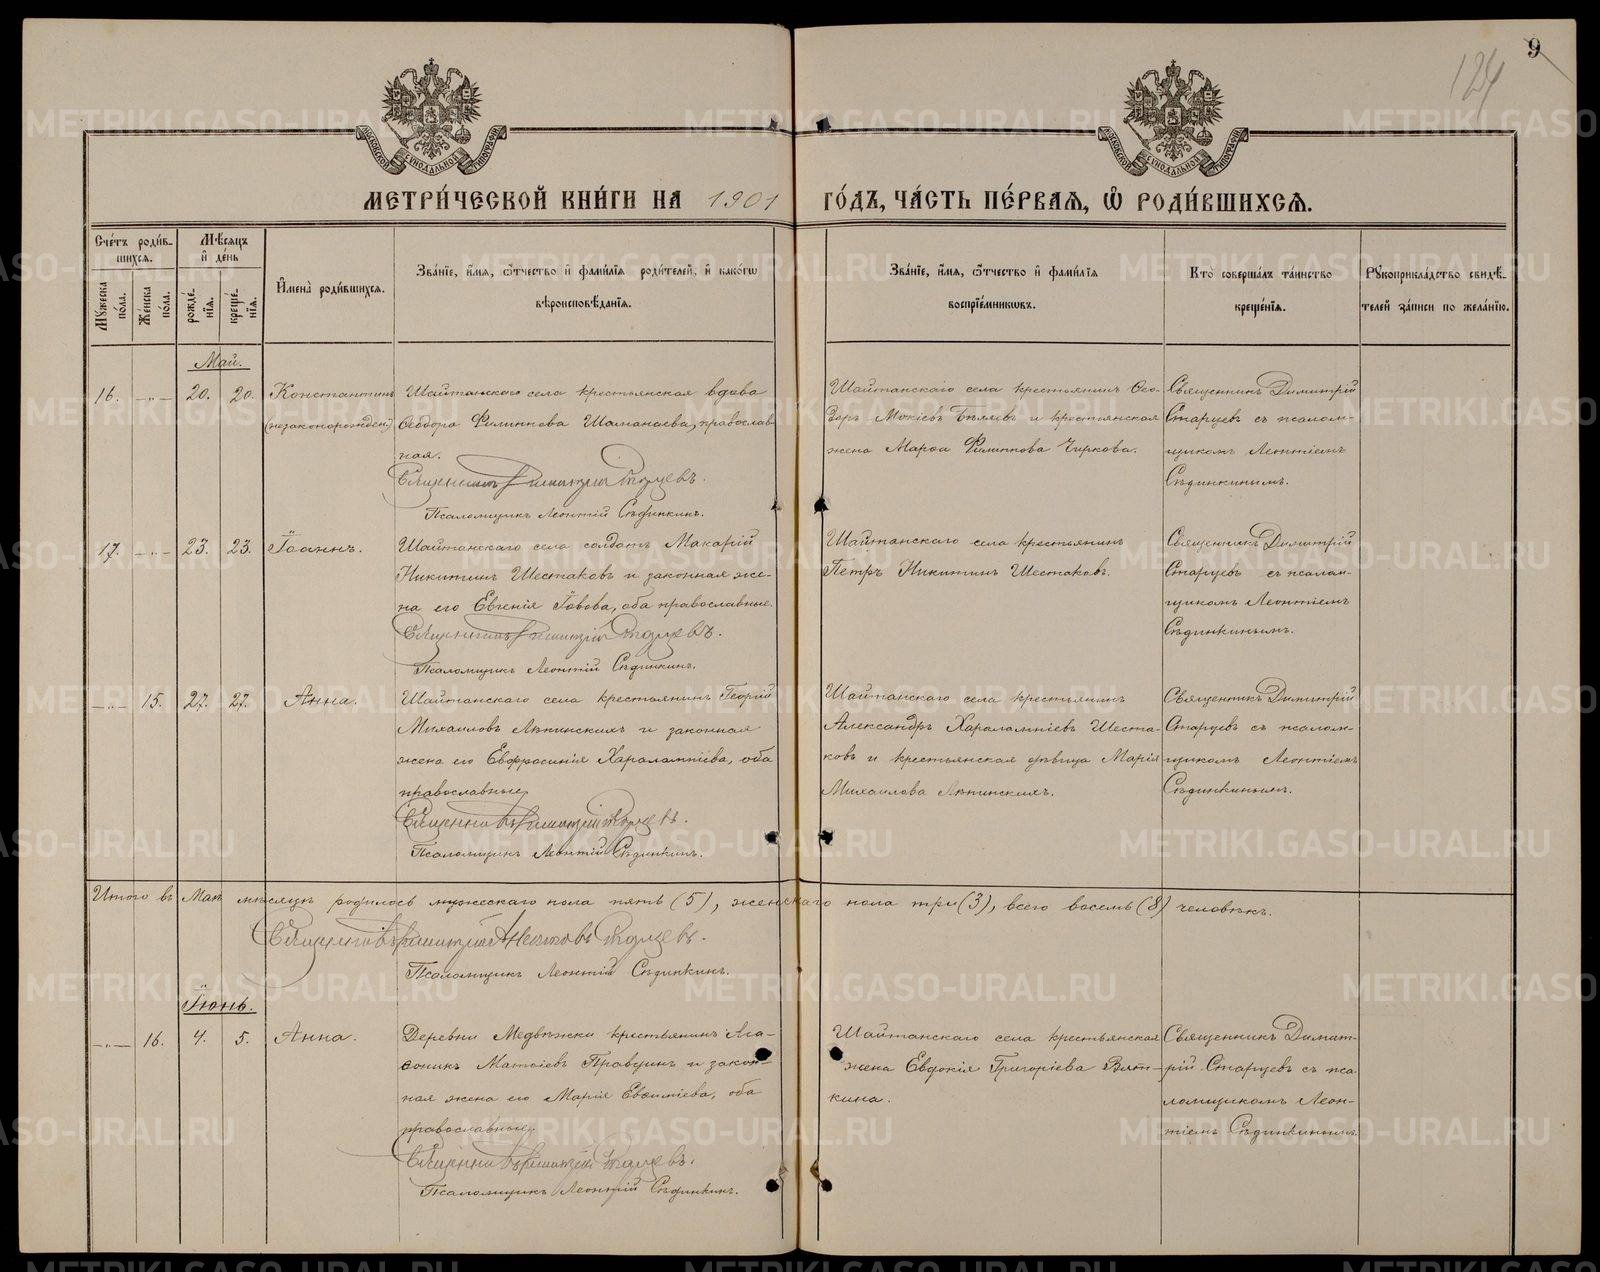 9
124
МОСКОВСКОЙ СУНОДАЛЬНОЙ ТИПОГРАФІИ
МОСКОВСКОЙ СУНОДАЛЬНОЙ ТИПОГРАФІИ
МЕТРИ́ЧЕСКОЙ КНИ́ГИ НА 1901 ГО́ДЪ, ЧА́СТЬ ПЕ́РВАѦ, Ѡ҆ РОДИ́ВШИХСѦ.
Сче́тъ роди́вшихсѧ.
Мѣ́сѧцъ и҆ де́нь
Мꙋ́жеска по́ла.
Же́нска по́ла.
рожде́нїѧ.
креще́нїѧ.
И҆мена̀ роди́вшихсѧ.
Зва́нїе, и҆́мѧ, ѻ҆́тчество и҆ фами́лїѧ роди́телей, и҆ како́гѡ
вѣроисповѣ́данїѧ.
Зва́нїе, и҆́мѧ, ѻ҆́тчество и҆ фами́лїѧ
воспрїе́мникѡвъ.
Кто̀ соверша́лъ та́инство
креще́нїѧ.
Рꙋкоприкла́дство свидѣ́-
телей за́писи по жела́нїю.
Май.
16. -"- 20. 20. Константинъ
(незаконорожден)
Шайтанскаго села крестьянская вдова
Ѳеодора Филиппова Шаманаева, православ-
ная.
Священникъ Димитрій Старцевъ.
Псаломщикъ Леонтій Сѣдинкинъ.
Шайтанскаго села крестьянинъ Ѳео-
доръ Мокіевъ Бѣляевъ и крестьянская
жена Марѳа Филиппова Чиркова.
Священникъ Димитрій
Старцевъ съ псалом-
щикомъ Леонтіемъ
Сѣдинкинымъ.
17. -"- 23. 23. Іоаннъ.
Шайтанскаго села солдатъ Макарій
Никитинъ Шестаковъ и законная же-
на его Евгенія Іовова, оба православные.
Священникъ Димитрій Старцевъ.
Псаломщикъ Леонтій Сѣдинкинъ.
Шайтанскаго села крестьянинъ
Петръ Никитинъ Шестаковъ.
Священникъ Димитрій
Старцевъ съ псалом-
щикомъ Леонтіемъ
Сѣдинкинымъ.
-"- 15. 27. 27. Анна.
Шайтанскаго села крестьянинъ Георгій
Михаиловъ Ляпинскихъ и законная
жена его Евфросинія Харалампіева, оба
православные.
Священникъ Димитрій Старцевъ.
Псаломщикъ Леонтій Сѣдинкинъ.
Шайтанскаго села крестьянинъ
Александръ Харалампіевъ Шеста-
ковъ и крестьянская дѣвица Марія
Михаилова Ляпинскихъ.
Священникъ Димитрій
Старцевъ съ псалом-
щикомъ Леонтіемъ
Сѣдинкинымъ.
Итого въ Маѣ мѣсяцѣ родилось мужескаго пола пять (5), женскаго пола три (3), всего восемь (8) человѣкъ.
Священникъ Димитрій Старцевъ.
Псаломщикъ Леонтій Сѣдинкинъ.
Іюнь.
-"- 16. 4. 5. Анна.
Деревни Медвѣжки крестьянинъ Ага-
ѳоникъ Матѳіевъ Правдинъ и закон-
ная жена его Марія Евѳиміева, оба
православные.
Священникъ Димитрій Старцевъ.
Псаломщикъ Леонтій Сѣдинкинъ.
Шайтанскаго села крестьянская
жена Евдокія Григоріева Вят-
кина.
Священникъ Димит-
рій Старцевъ съ пса
ломщикомъ Леон-
тіемъ Сѣдинкинымъ.
METRIKI.GASO-URAL.RU